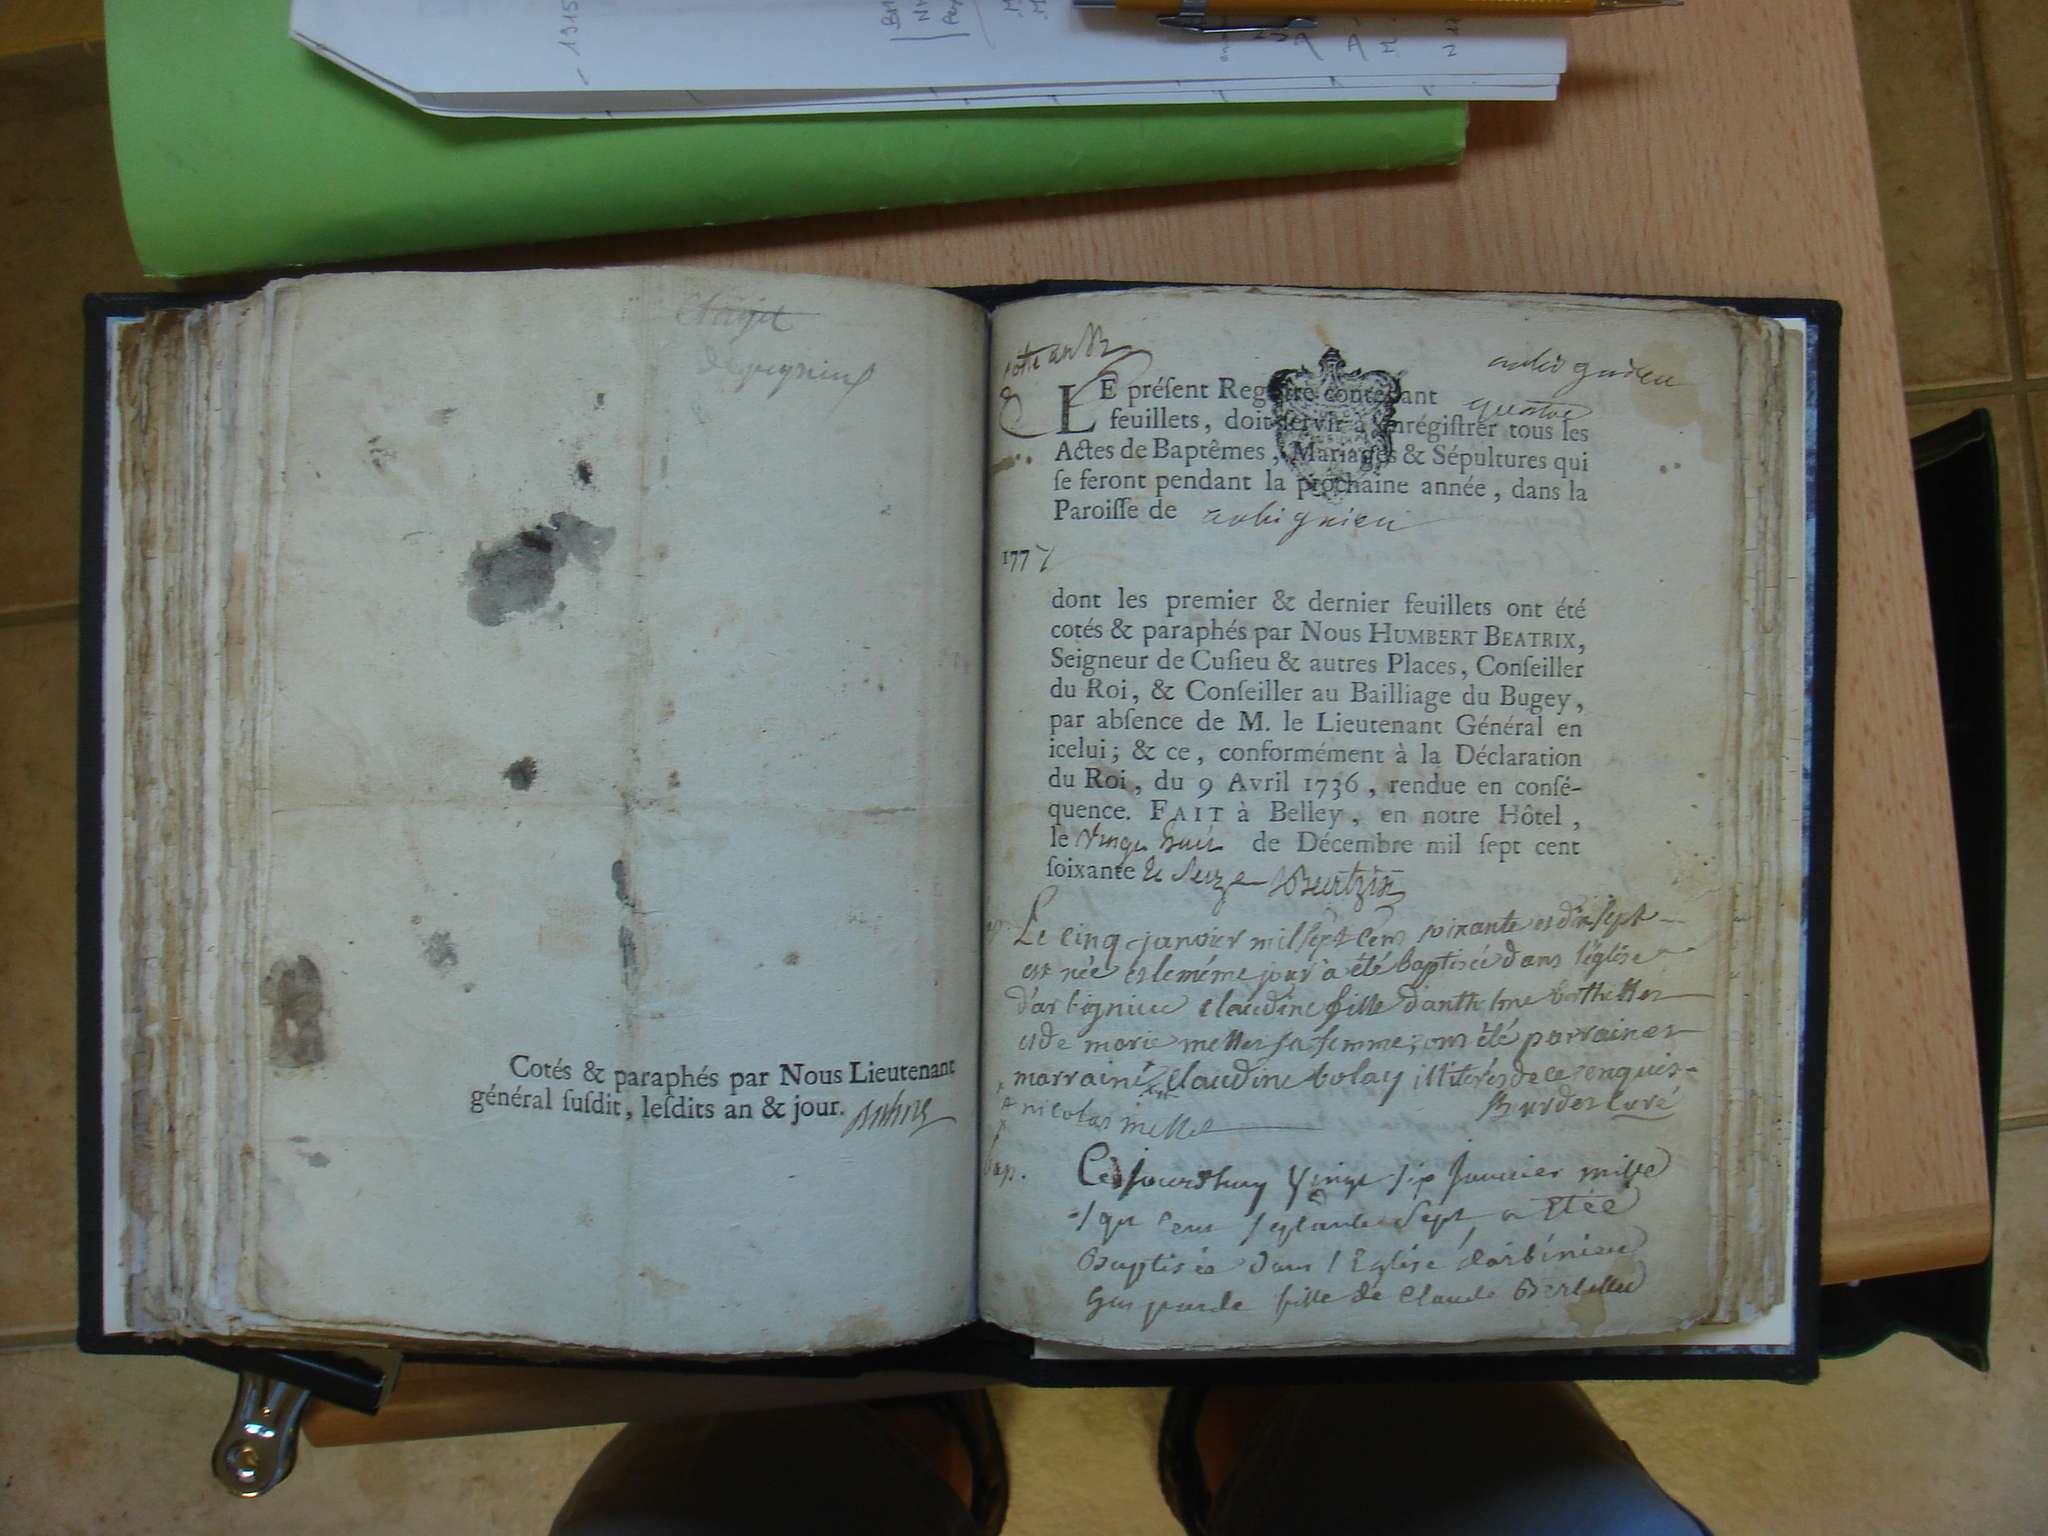 1915
Cotés & paraphés par Nous Lieutenant
général ſuſdit, leſdits an & jour.
arbignieu
LE préſent Regiſtre contenant quatre
feuillets, doit ſervir à enrégiſtrer tous les
Actes de Baptêmes, Mariages & Sépultures qui
ſe feront pendant la prochaine année, dans la
Paroiſſe de arbignieu
1777
dont les premier & dernier feuillets ont été
cotés & paraphés par Nous HUMBERT BEATRIX,
Seigneur de Cuſieu & autres Places, Conſeiller
du Roi, & Conſeiller au Bailliage du Bugey,
par abſence de M. le Lieutenant Général en
icelui; & ce, conformément à la Déclaration
du Roi, du 9 Avril 1736, rendue en conſé-
quence. FAIT à Belley, en notre Hôtel,
le Vingt huit de Décembre mil ſept cent
ſoixante & Seize
Le cinq janvier mil sept cent soixante et dix sept
est née et le méme jour a été baptisée dans l'église
d'arbignieu claudine fille d'anthelme berthellet
et de marie mettet sa femme; ont été parrain et
marraine claudine bolay illiterés de ce enquis-
nicolas mettet
Burdet Curé
bap.
Cejourdhuy Vingt six Janvier mille
sept cent septante Sept a Etée
Baptisée dans l'Eglise darbinieu
Gasparde fille de Claude Berthellet